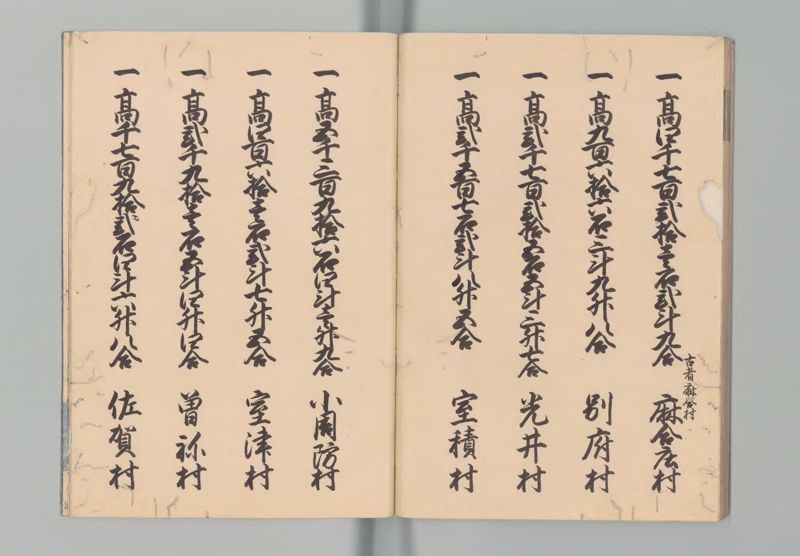 一高四千七百弐拾壱石弐斗九合 麻合庄村
古者麻合村
一高九百六拾六石三斗九升八合 別府村
一高弐千七百弐拾五石五斗三升七合 光井村
一高弐千五百七石弐斗八升五合 室積村
一高五千三百九拾六石四斗壱升九合 小周防村
一高四百六拾壱石弐斗七升五合 室津村
一高弐千九拾壱石五斗四升四合 曽祢村
一高千七百九拾弐石四斗六升八合 佐賀村